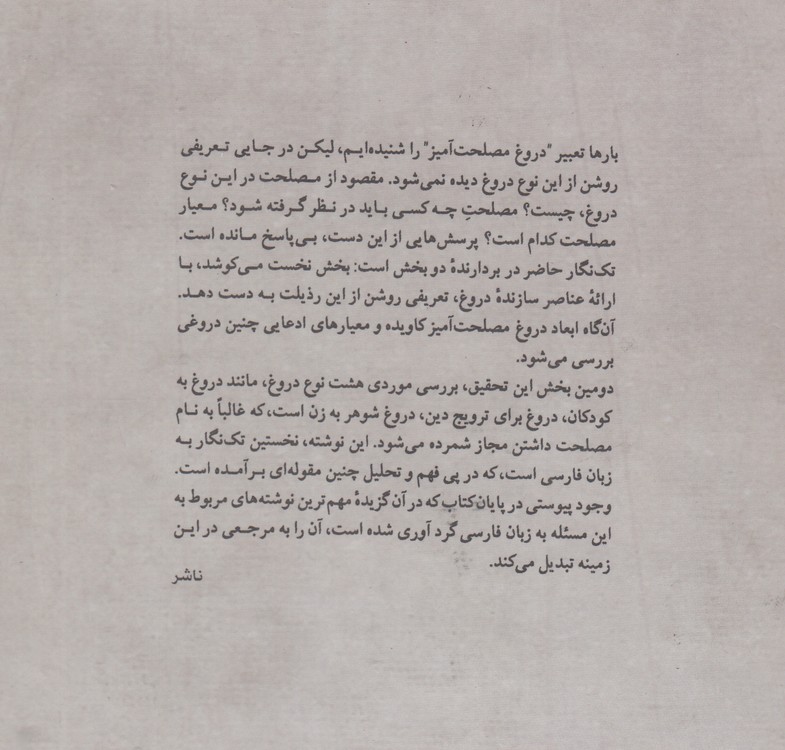 بارها تعبیر "دروغ مصلحت‌آمیز" را شنیده‌ایم، لیکن در جایی تعریفی
روشن از این نوع دروغ دیده نمی‌شود. مقصود از مصلحت در این نوع
دروغ، چیست؟ مصلحتِ چه کسی باید در نظر گرفته شود؟ معیار
مصلحت کدام است؟ پرسش‌هایی از این دست، بی‌پاسخ مانده است.
تک‌نگار حاضر در بردارندهٔ دو بخش است: بخش نخست می‌کوشد، با
ارائهٔ عناصر سازندهٔ دروغ، تعریفی روشن از این رذیلت به دست دهد.
آن‌گاه ابعاد دروغ مصلحت‌آمیز کاویده و معیارهای ادعایی چنین دروغی
بررسی می‌شود.
دومین بخش این تحقیق، بررسی موردی هشت نوع دروغ، مانند دروغ به
کودکان، دروغ برای ترویج دین، دروغ شوهر به زن است،که غالباً به نام
مصلحت داشتن مجاز شمرده می‌شود. این نوشته، نخستین تک‌نگار به
زبان فارسی است،که در پی فهم و تحلیل چنین مقوله‌ای برآمده است.
وجود پیوستی در پایان‌کتاب‌که در آن گزیدهٔ مهم‌ترین نوشته‌های مربوط به
این مسئله به زبان فارسی گرد آوری شده است، آن را به مرجعی در این
زمینه تبدیل می‌کند.
ناشر